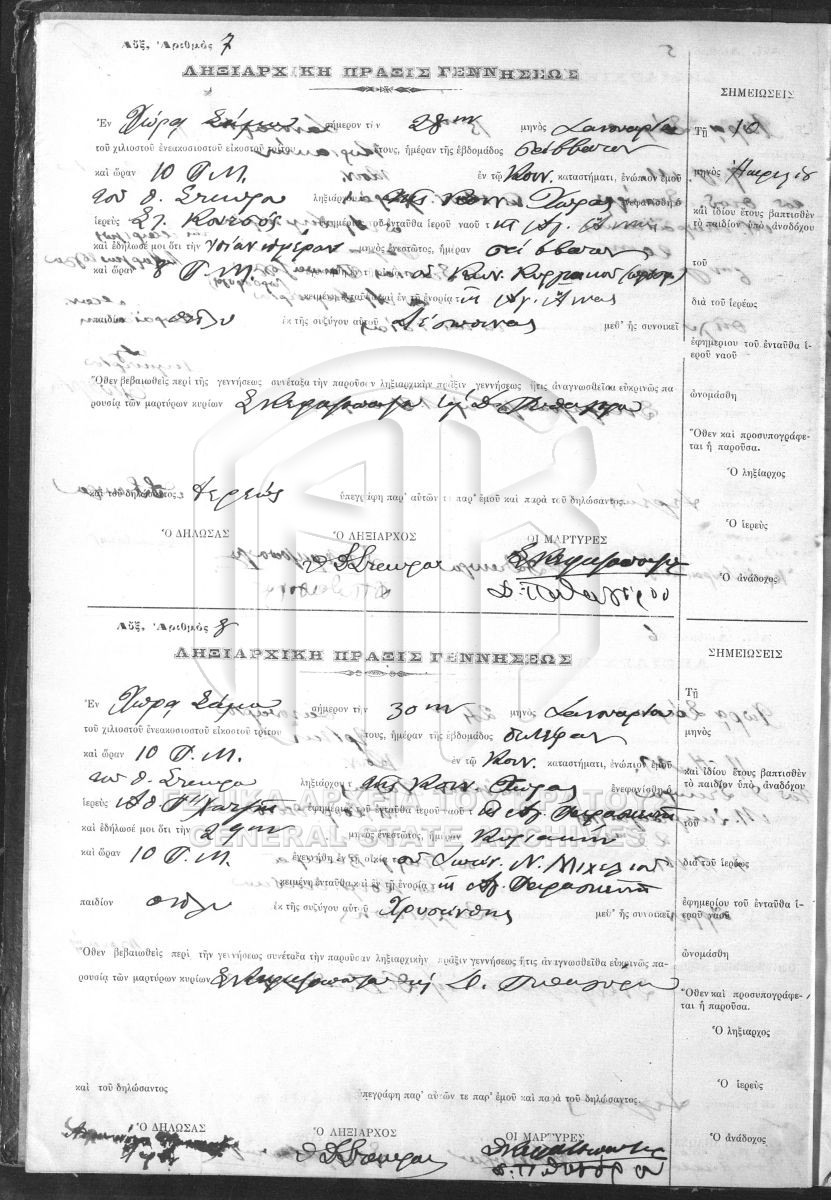 Αὔξ. Ἀριθμὸς 7
ΛΗΞΙΑΡΧΙΚΗ ΠΡΑΞΙΣ ΓΕΝΝΗΣΕΩΣ
ΣΗΜΕΙΩΣΕΙΣ
Ἐν Χώρᾳ Σάμου σήμερον τὴν 28ην μηνὸς Ἰανουαρίου
τοῦ χιλιοστοῦ ἐνεακοσιοστοῦ εἰκοστοῦ τρίτου ἔτους, ἡμέραν τῆς ἑβδομάδος
καὶ ὥραν 10 Π.Μ. ἐν τῷ Κοιν. καταστήματι, ἐνώπιον ἐμοῦ
τοῦ Θ. Σταύρου ληξιάρχου τῆς Κοιν. Χώρας ἐνεφανίσθη ὁ
ἱερεὺς ἐφημέριος τοῦ ἐνταῦθα ἱεροῦ ναοῦ τῆς Ἁγ. Ἄννης
καὶ ἐδήλωσέ μοι ὅτι τὴν ἡμέραν μηνὸς ἐνεστῶτος, ἡμέραν
καὶ ὥραν 8 Π.Μ. Κυριακοῦ
κειμένῃ ἐνταῦθα καὶ ἐν τῇ ἐνορίᾳ τῆς Ἁγ. Ἄννης
παιδίον θῆλυ ἐκ τῆς συζύγου αὐτοῦ Δέσποινας μεθ' ἧς συνοικεῖ
Τῇ 10
μηνὸς Ἀπριλίου
καὶ ἰδίου ἔτους βαπτισθὲν
τὸ παιδίον ὑπὸ ἀναδόχου
τοῦ
διὰ τοῦ ἱερέως
ἐφημερίου τοῦ ἐνταῦθα ἱ-
εροῦ ναοῦ
Ὅθεν βεβαιωθεὶς περὶ τῆς γεννήσεως συνέταξα τὴν παροῦσαν ληξιαρχικὴν πρᾶξιν γεννήσεως ἥτις ἀναγνωσθεῖσα εὐκρινῶς πα-
ρουσίᾳ τῶν μαρτύρων κυρίων
ὠνομάσθη
Ὅθεν καὶ προσυπογράφε-
ται ἡ παροῦσα.
Ὁ ληξίαρχος
καὶ τοῦ δηλώσαντος ἱερέως ὑπεγράφη παρ' αὐτῶν τε παρ' ἐμοῦ καὶ παρὰ τοῦ δηλώσαντος.
Ὁ ἱερεὺς
Ὁ ΔΗΛΩΣΑΣ Ὁ ΛΗΞΙΑΡΧΟΣ ΟΙ ΜΑΡΤΥΡΕΣ
Θ Δ Σταύρου
Δ. Πυθαγόρου
Ὁ ἀνάδοχος
Αὔξ. Ἀριθμὸς 8
ΛΗΞΙΑΡΧΙΚΗ ΠΡΑΞΙΣ ΓΕΝΝΗΣΕΩΣ
ΣΗΜΕΙΩΣΕΙΣ
Ἐν Χώρᾳ Σάμου σήμερον τὴν 30ην μηνὸς Ἰανουαρίου
τοῦ χιλιοστοῦ ἐνεακοσιοστοῦ εἰκοστοῦ τρίτου ἔτους, ἡμέραν τῆς ἑβδομάδος δευτέραν
καὶ ὥραν 10 Π.Μ. ἐν τῷ Κοιν. καταστήματι, ἐνώπιον ἐμοῦ
τοῦ Θ. Σταύρου ληξιάρχου τῆς Κοιν. Χώρας ἐνεφανίσθη ὁ
ἱερεὺς ἐφημέριος τοῦ ἐνταῦθα ἱεροῦ ναοῦ τῆς Ἁγ. Παρασκευῆς
καὶ ἐδήλωσέ μοι ὅτι τὴν 29ην μηνὸς ἐνεστῶτος, ἡμέραν Κυριακὴν
καὶ ὥραν 10 Π.Μ. ἐγεννήθη ἐν τῇ οἰκίᾳ τοῦ Ν. Μιχελιοῦ
κειμένῃ ἐνταῦθα καὶ ἐν τῇ ἐνορίᾳ τῆς Ἁγ. Παρασκευῆς
παιδίον θῆλυ ἐκ τῆς συζύγου αὐτοῦ Χρυσάνθης μεθ' ἧς συνοικεῖ
Τῇ
μηνὸς
καὶ ἰδίου ἔτους βαπτισθὲν
τὸ παιδίον ὑπὸ ἀναδόχου
τοῦ
διὰ τοῦ ἱερέως
ἐφημερίου τοῦ ἐνταῦθα ἱ-
εροῦ ναοῦ
ΓΕΝΙΚΑ ΑΡΧΕΙΑ ΤΟΥ ΚΡΑΤΟΥΣ
GENERAL STATE ARCHIVES
Ὅθεν βεβαιωθεὶς περὶ τὴν γεννήσεως συνέταξα τὴν παροῦσαν ληξιαρχικὴν πρᾶξιν γεννήσεως ἥτις ἀναγνωσθεῖσα εὐκρινῶς πα-
ρουσίᾳ τῶν μαρτύρων κυρίων Δ. Πυθαγόρου
ὠνομάσθη
Ὅθεν καὶ προσυπογράφε-
ται ἡ παροῦσα.
Ὁ ληξίαρχος
καὶ τοῦ δηλώσαντος ὑπεγράφη παρ' αὐτῶν τε παρ' ἐμοῦ καὶ παρὰ τοῦ δηλώσαντος.
Ὁ ἱερεὺς
Ὁ ΔΗΛΩΣΑΣ Ὁ ΛΗΞΙΑΡΧΟΣ ΟΙ ΜΑΡΤΥΡΕΣ
Θ Δ Σταύρου
Δ. Πυθαγόρου
Ὁ ἀνάδοχος